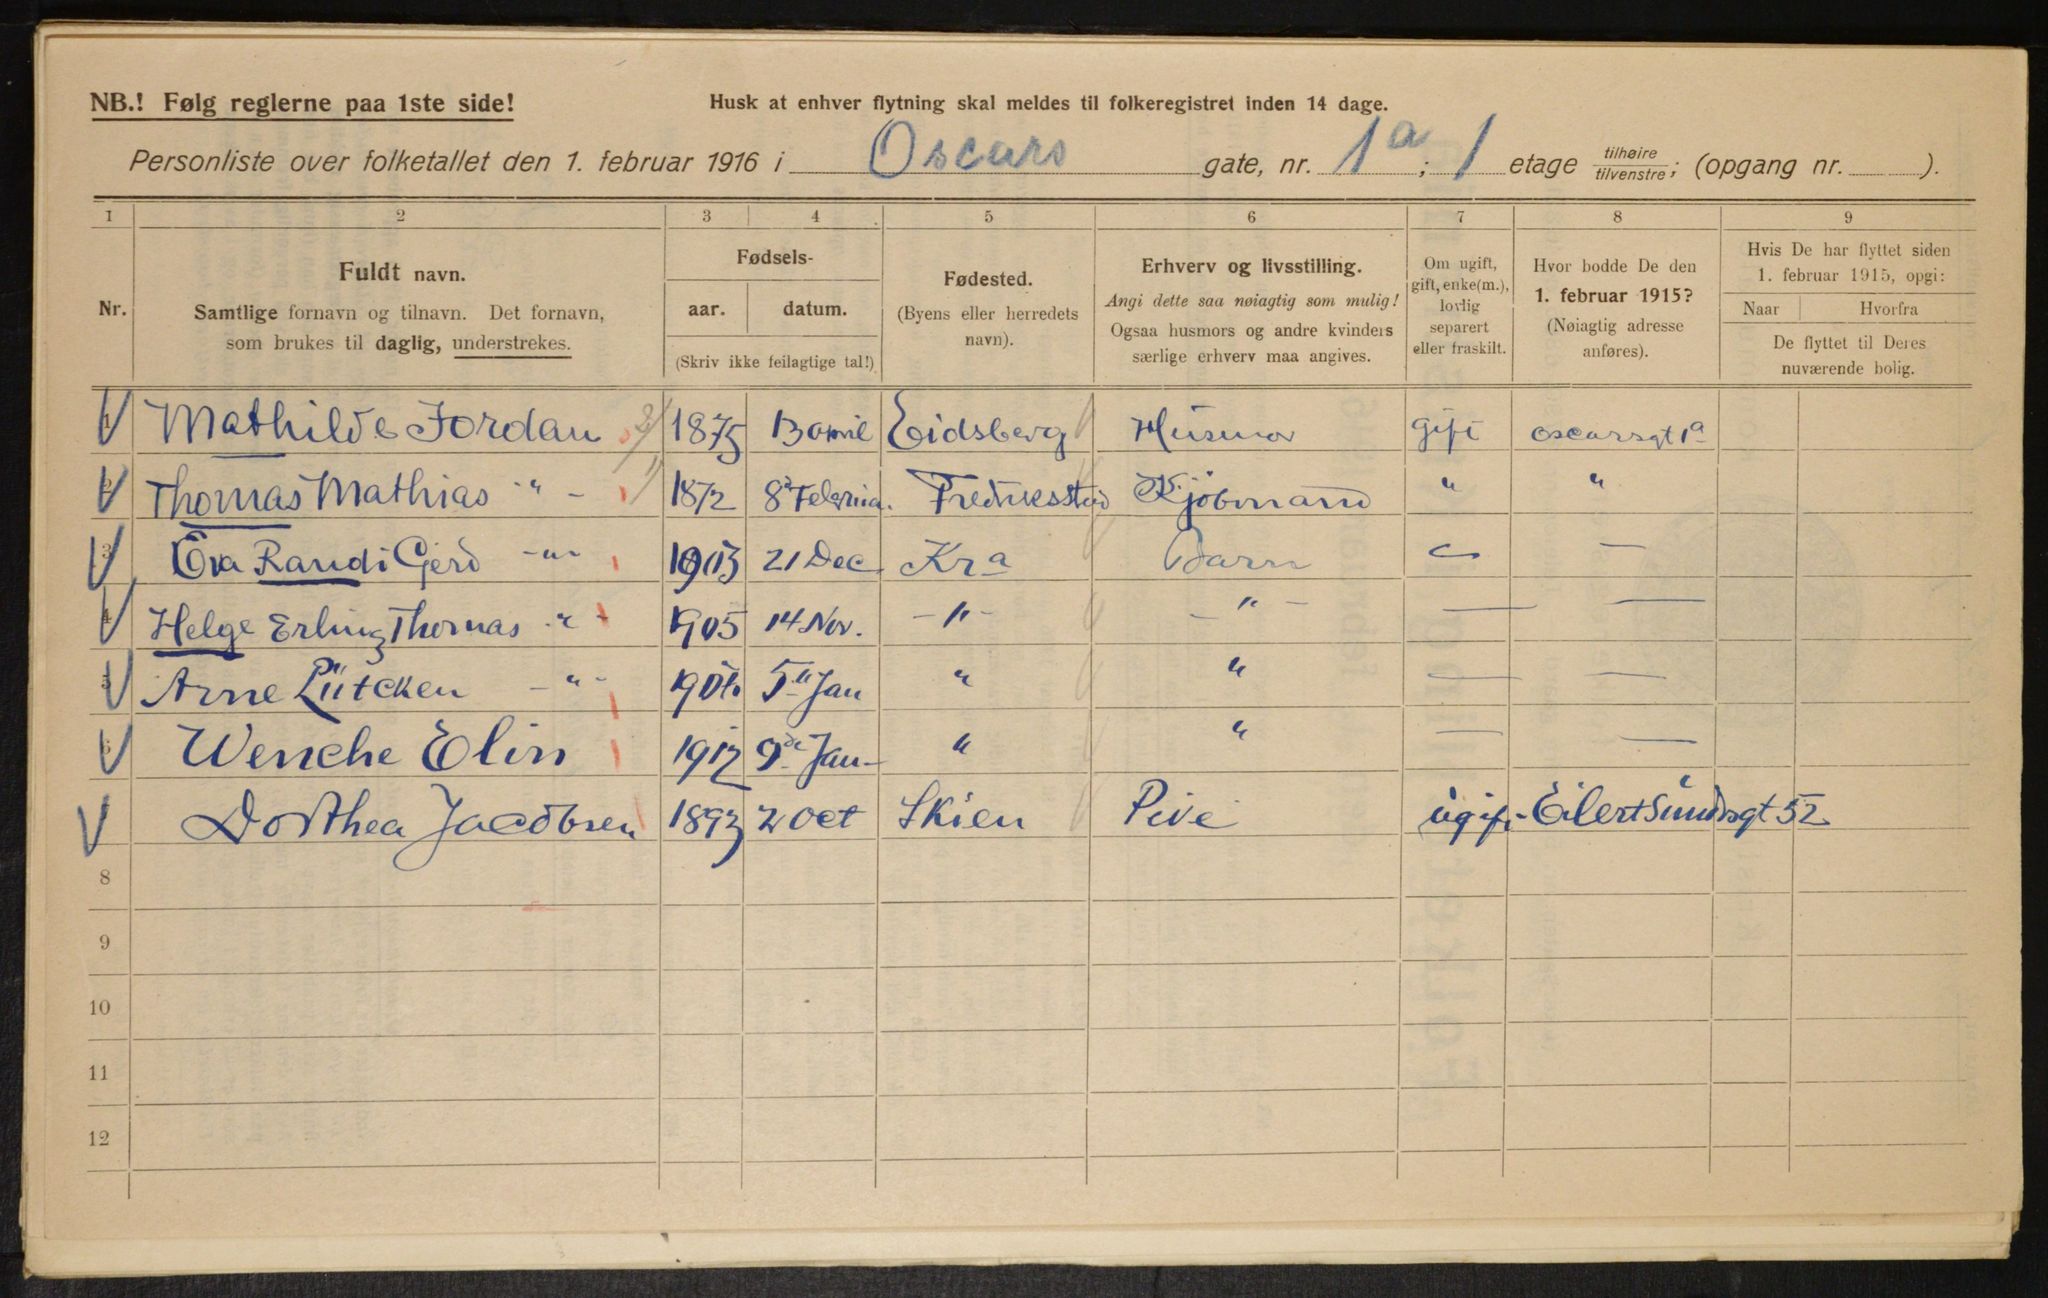 NB.! Følg reglerne paa 1ste side! Husk at enhver flytning skal meldes til folkeregistret inden 14 dage.
Personliste over folketallet den 1. februar 1916 i Oscars gate, nr. 1a ; 1 etage tilhøire tilvenstre ; (opgang nr. ).
1 2 3 4 5 6 7 8 9
Nr.
Fuldt navn.
Samtlige fornavn og tilnavn. Det fornavn,
som brukes til daglig, understrekes.
Fødsels-
aar. datum.
(Skriv ikke feilagtige tal!)
Fødested.
(Byens eller herredets
navn).
Erhverv og livsstilling.
Angi dette saa nøiagtig som mulig!
Ogsaa husmors og andre kvinders
særlige erhverv maa angives.
Om ugift,
gift, enke(m.),
lovlig
separert
eller fraskilt.
Hvor bodde De den
1. februar 1915?
(Nøiagtig adresse
anføres).
Hvis De har flyttet siden
1. februar 1915, opgi:
Naar Hvorfra
De flyttet til Deres
nuværende bolig.
1 Mathilde Jordan 1875 13 april Eidsberg Husmor gift oscarsgt 1a
2 Thomas Mathias " - 1872 8 Februar Fredriksstad Kjøbmand " "
3 Eva Randi Gerd -"- 1903 21 Dec Kra Barn — —
4 Helge Erling Thomas " - 1905 14 Nov. -"- -"- — —
5 Arne Lütcken -"- 5 Jan " " — —
6 Wenche Elin 1912 9de Jan " " — —
Dorthea Jacobsen 1893 2 Oct Skien Pike ugift Eilert Sundsgt 52
8
9
10
11
12